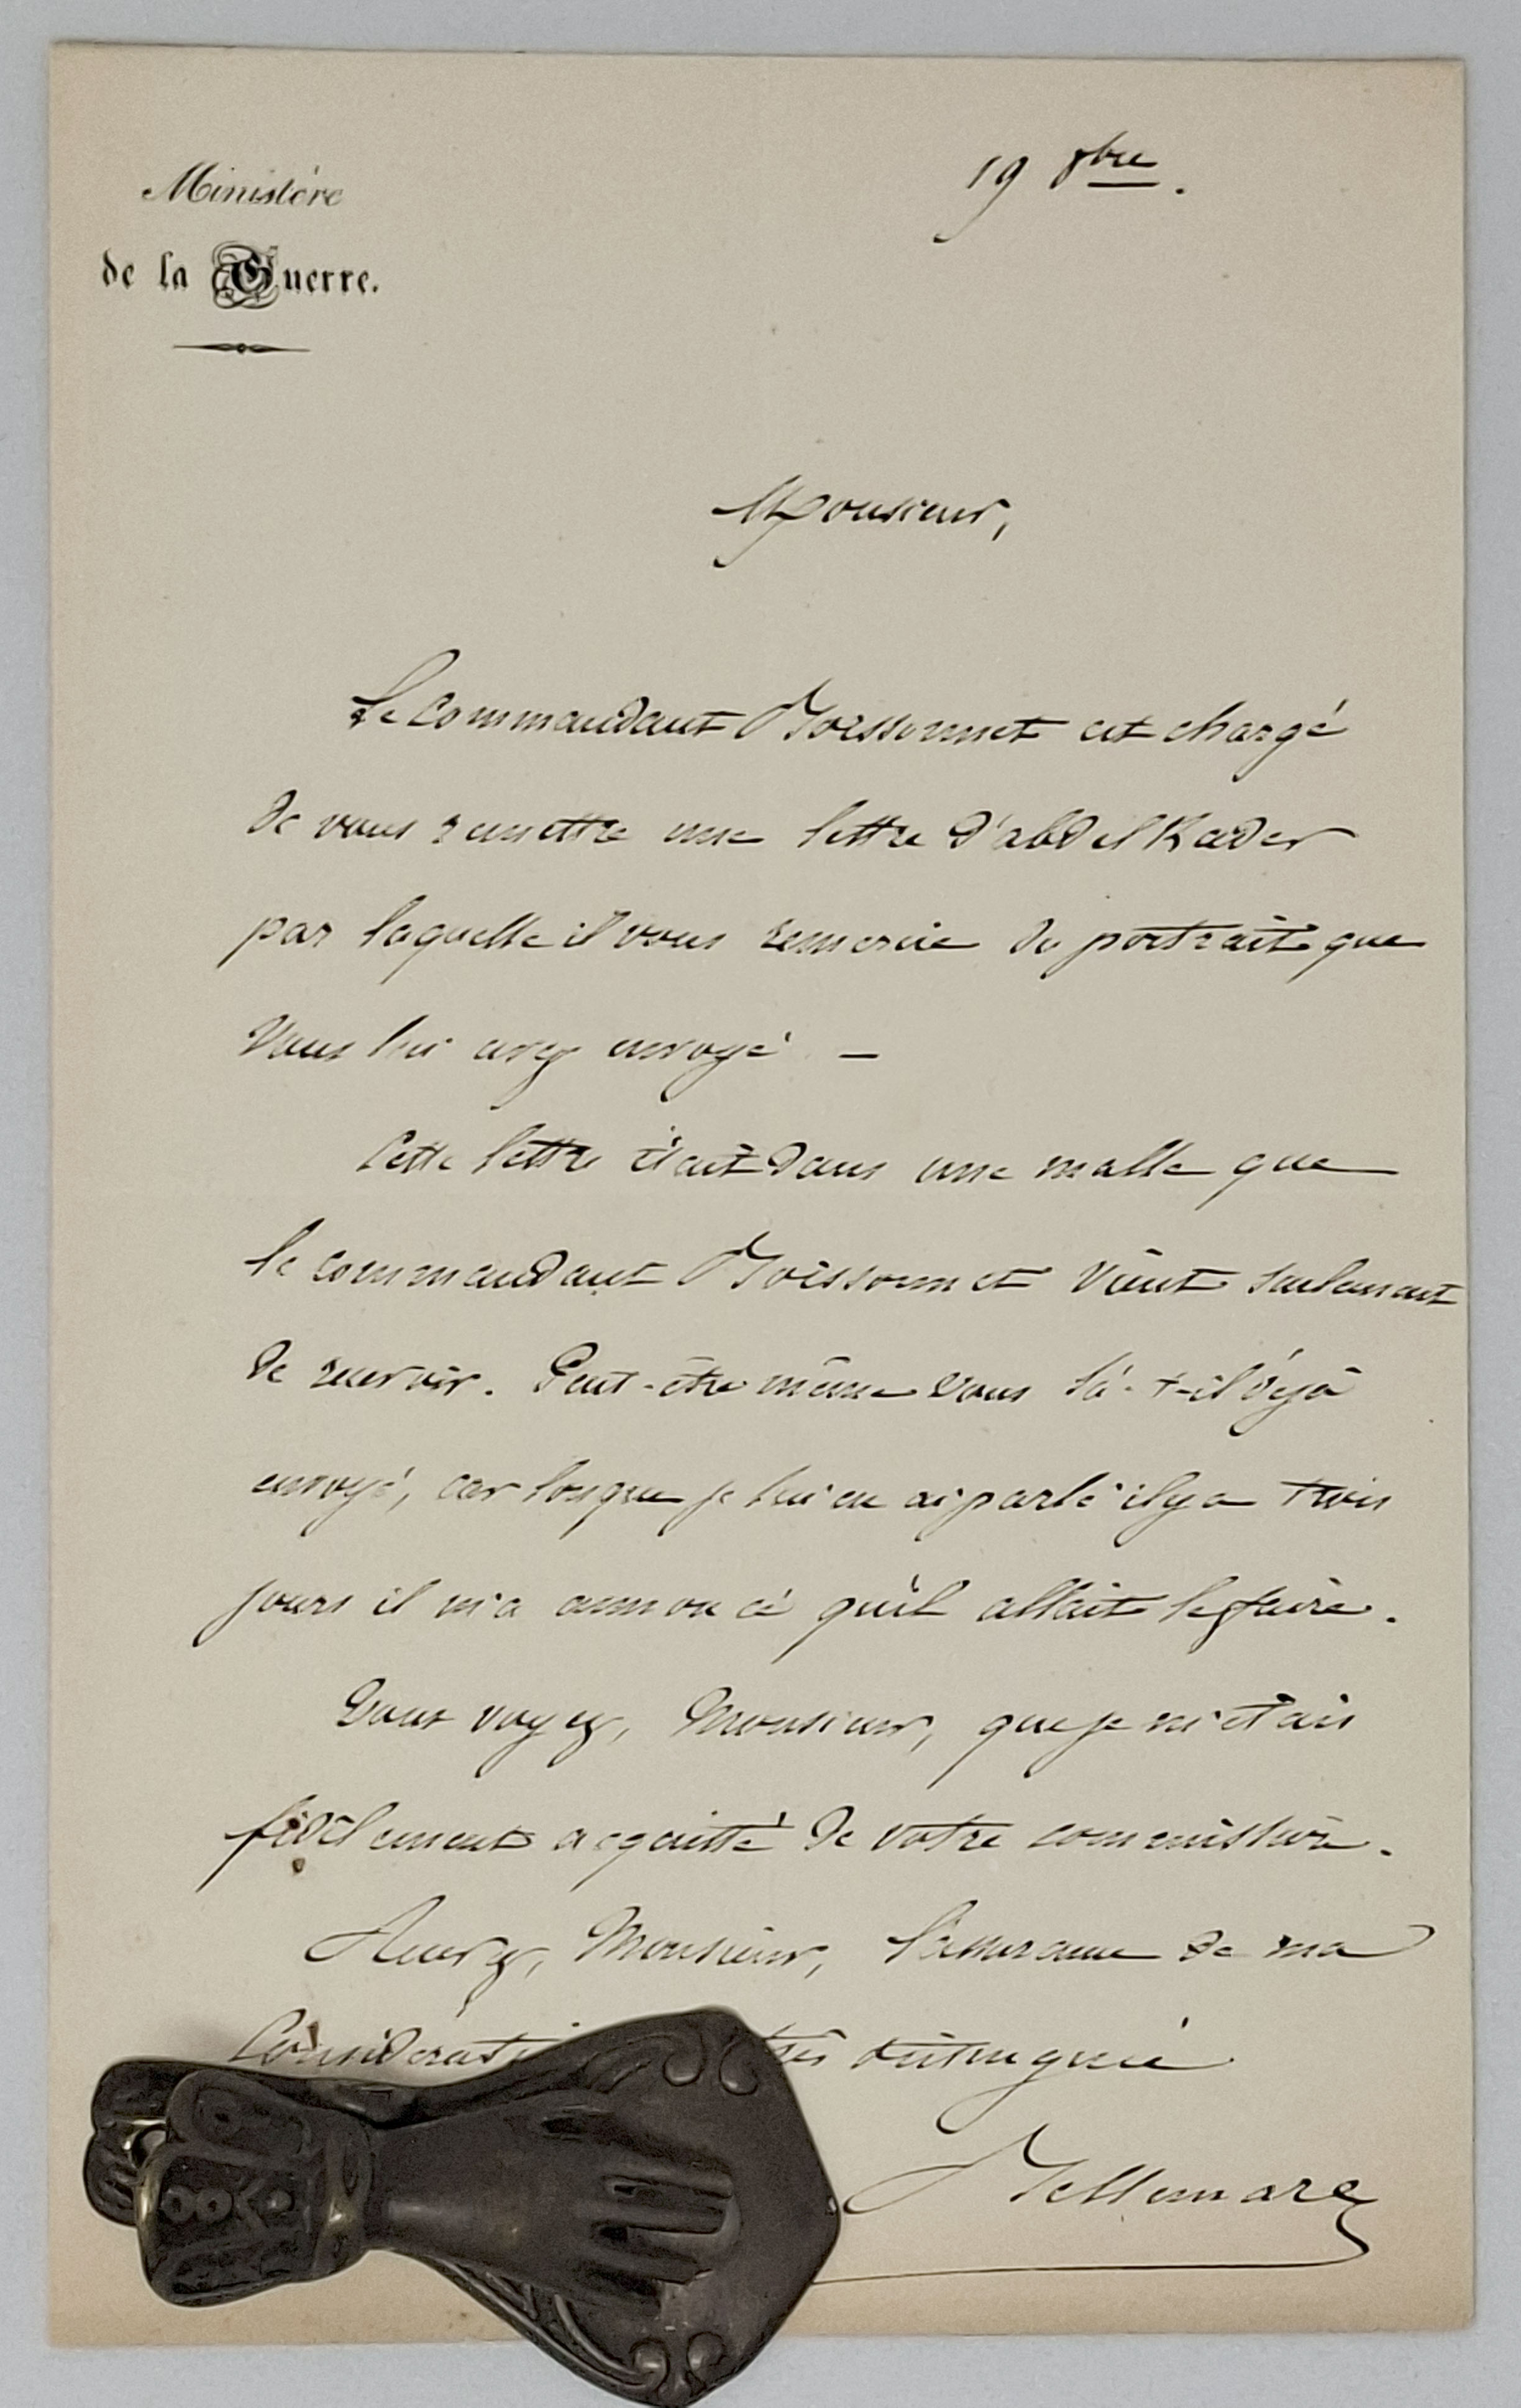 Ministère
de la Guerre.
19 8bre.
Monsieur,
Le Commandant Boissonnet est chargé
de vous remettre une lettre d'abd el Kader
par laquelle il vous remercie du portrait que
Vous lui avez envoyé —
Cette lettre était dans une malle que
le commandant Boissonnet vient seulement
de recevoir. Peut-être même vous l'a-t-il déjà
envoyé, car lorsque je lui en ai parlé il y a trois
jours il m'a annoncé qu'il allait le faire.
Vous voyez, Monsieur, que je m'étais
fidèlement acquitté de votre commission.
Recevez, Monsieur, l'assurance de ma
Considérati très distinguée
Bellemare